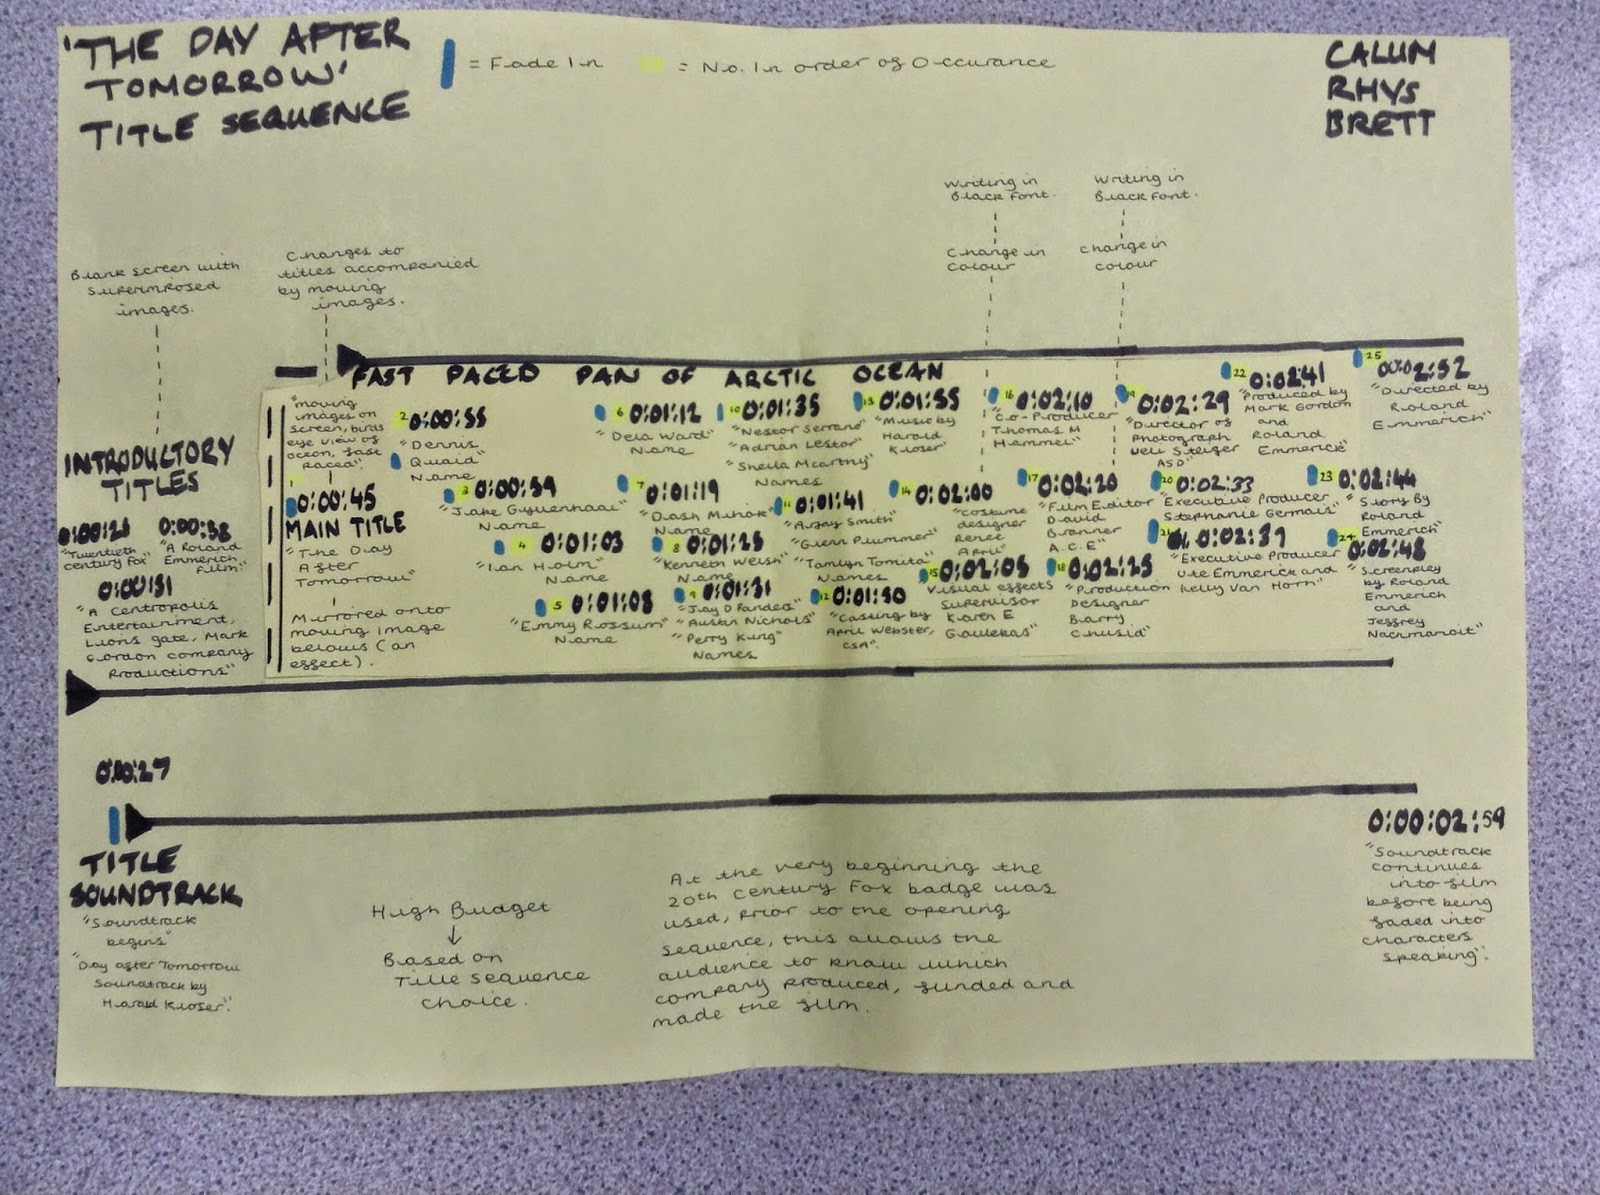 'THE DAY AFTER
TOMORROW'
TITLE SEQUENCE
= Fade In
= No. In order of Occurance
CALUM
RHYS
BRETT
Blank screen with
superimposed
images.
Changes to
titles accompanied
by moving
images.
Writing in
Black Font.
Change in
colour
Writing in
Black Font.
change in
colour
FAST PACED PAN OF ARCTIC OCEAN
INTRODUCTORY
TITLES
"Twentieth
century Fox"
0:00:38
"A Roland
Emmerich
Film"
0:00:31
"A Centropolis
Entertainment,
Lions gate, Mark
Gordon company
Productions"
"moving
images on
screen, birds
eye view of
ocean, fast
paced".
0:00:45
MAIN TITLE
"The Day
After
Tomorrow"
Mirrored onto
moving image
below (an
effect).
2 0:00:55
"Dennis
Quaid"
Name
3 0:00:59
Name
4 0:01:03
"Ian Holm"
Name
5 0:01:08
"Emmy Rossum"
Name
6 0:01:12
"Dela Ward"
Name
7 0:01:19
"Dash Mihok"
Name
8 0:01:25
"Kenneth Welsh"
Name
9 0:01:31
"Jay O Sanders"
"Austin Nichols"
"Perry King"
Names
10 0:01:35
"Nestor Serrano"
"Adrian Lestor"
"Sheila Mcarthy"
Names
11 0:01:41
"Arjay Smith"
"Glenn Plummer"
Tamlyn Tomita"
Names
12 0:01:50
"Casting by
April Webster,
CSA".
13 0:01:55
"Music by
Harald
Kloser"
14 0:02:00
"Costume
designer
Renee
April"
15 0:02:05
Visual effects
Supervisor
Karen E
Goulekas"
16 0:02:10
"Co-Producer
Thomas M
Hammel"
17 0:02:20
"Film Editor
David
Brenner
A.C.E"
18 0:02:25
"Production
Designer
Barry
Chusid"
19 0:02:29
"Director of
Photograph
Ueli Steiger
ASD"
20 0:02:33
"Executive Producer
Stephanie Germain"
0:02:37
"Executive Producer
Ute Emmerich and
Kelly Van Horn"
22 0:02:41
"Produced by
Mark Gordon
and
Roland
Emmerich"
23 0:02:44
"Story By
Roland
Emmerich"
24 0:02:48
"Screenplay
by Roland
Emmerich
and
Jeffrey
Nachmanoff"
25 0:02:52
"Directed by
Roland
Emmerich"
0:00:27
TITLE
SOUNDTRACK
"Soundtrack
begins"
"Day after Tomorrow
Soundtrack by
Harald Kloser".
High Budget
↓
Based on
Title sequence
choice.
At the very beginning the
20th Century Fox badge was
used, prior to the opening
sequence, this allows the
audience to know which
company produced, funded and
made the film.
0:00:02:59
"Soundtrack
continues
into film
before being
faded into
characters
speaking".